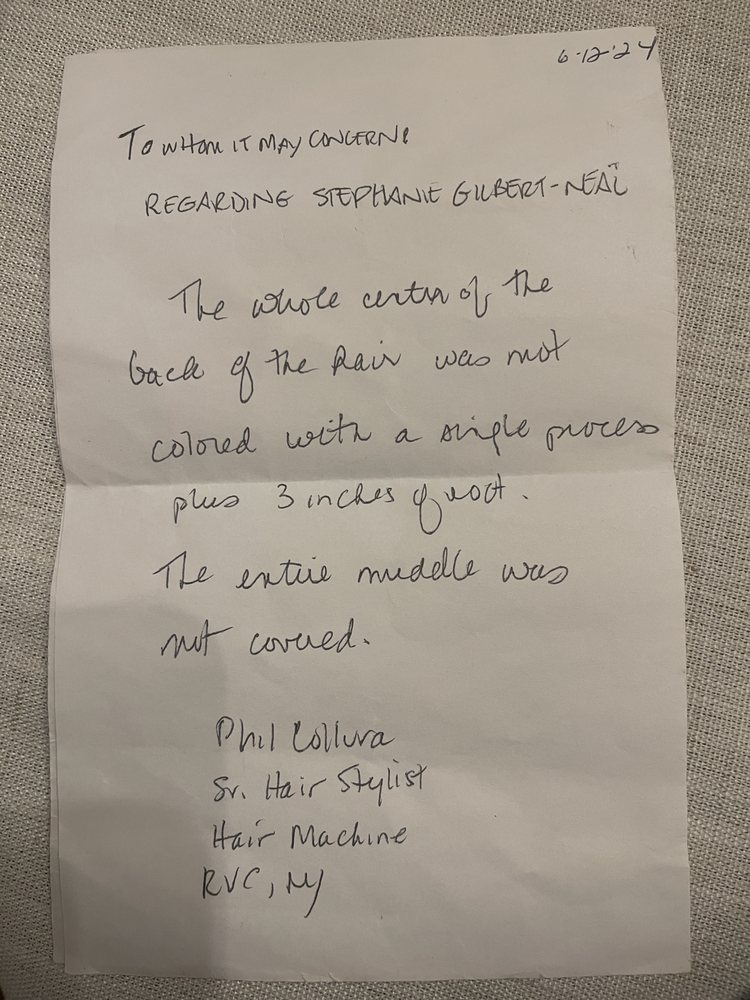 6-12-24
TO WHOM IT MAY CONCERN:
REGARDING STEPHANIE GILBERT-NEAL
The whole center of the
back of the hair was not
colored with a single process
plus 3 inches of root.
The entire middle was
not covered.
Phil Collura
Sr. Hair Stylist
Hair Machine
RVC, NY